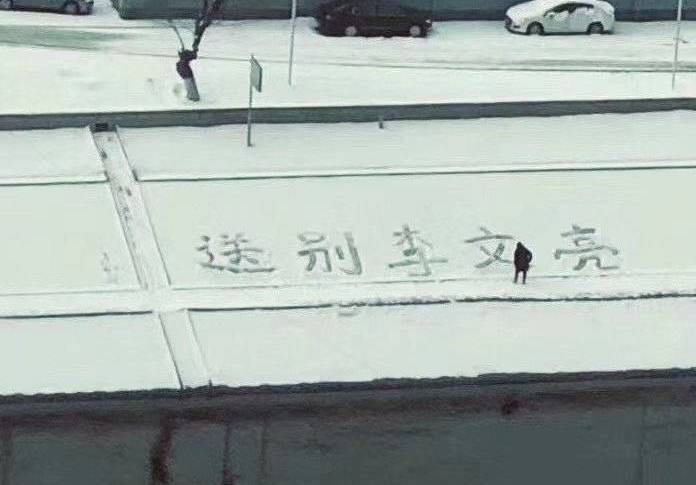 送别李文亮